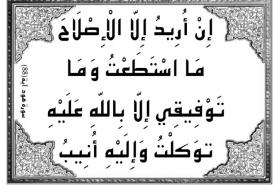 إِنْ أُرِيدُ إِلَّا الْإِصْلَاحَ
مَا اسْتَطَعْتُ وَمَا
تَوْفِيقِي إِلَّا بِاللَّهِ عَلَيْهِ
تَوَكَّلْتُ وَإِلَيْهِ أُنِيبُ
سورة هود آية (88)